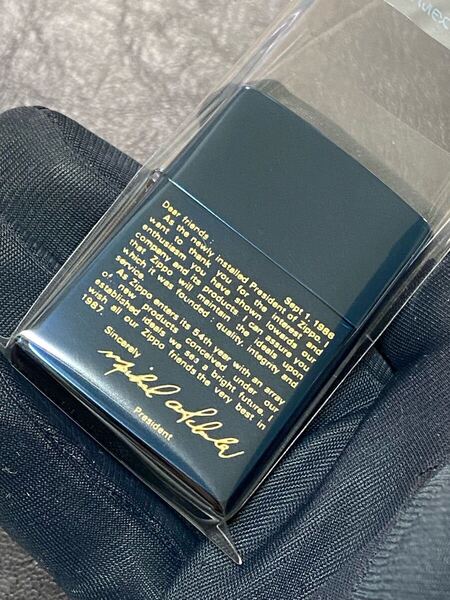 Sept 1, 1986
Dear friends :
As the newly installed President of Zippo, I
want to thank you for the interest and
enthusiasm you have shown towards our
company and its products. I can assure you
that Zippo will maintain the ideals upon
which it was founded : quality, integrity and
service.
As Zippo enters its 54th year with an array
of new products conceived under our
established ideals we see a bright future. I
wish all our Zippo friends the very best in
1987.
Sincerely
President